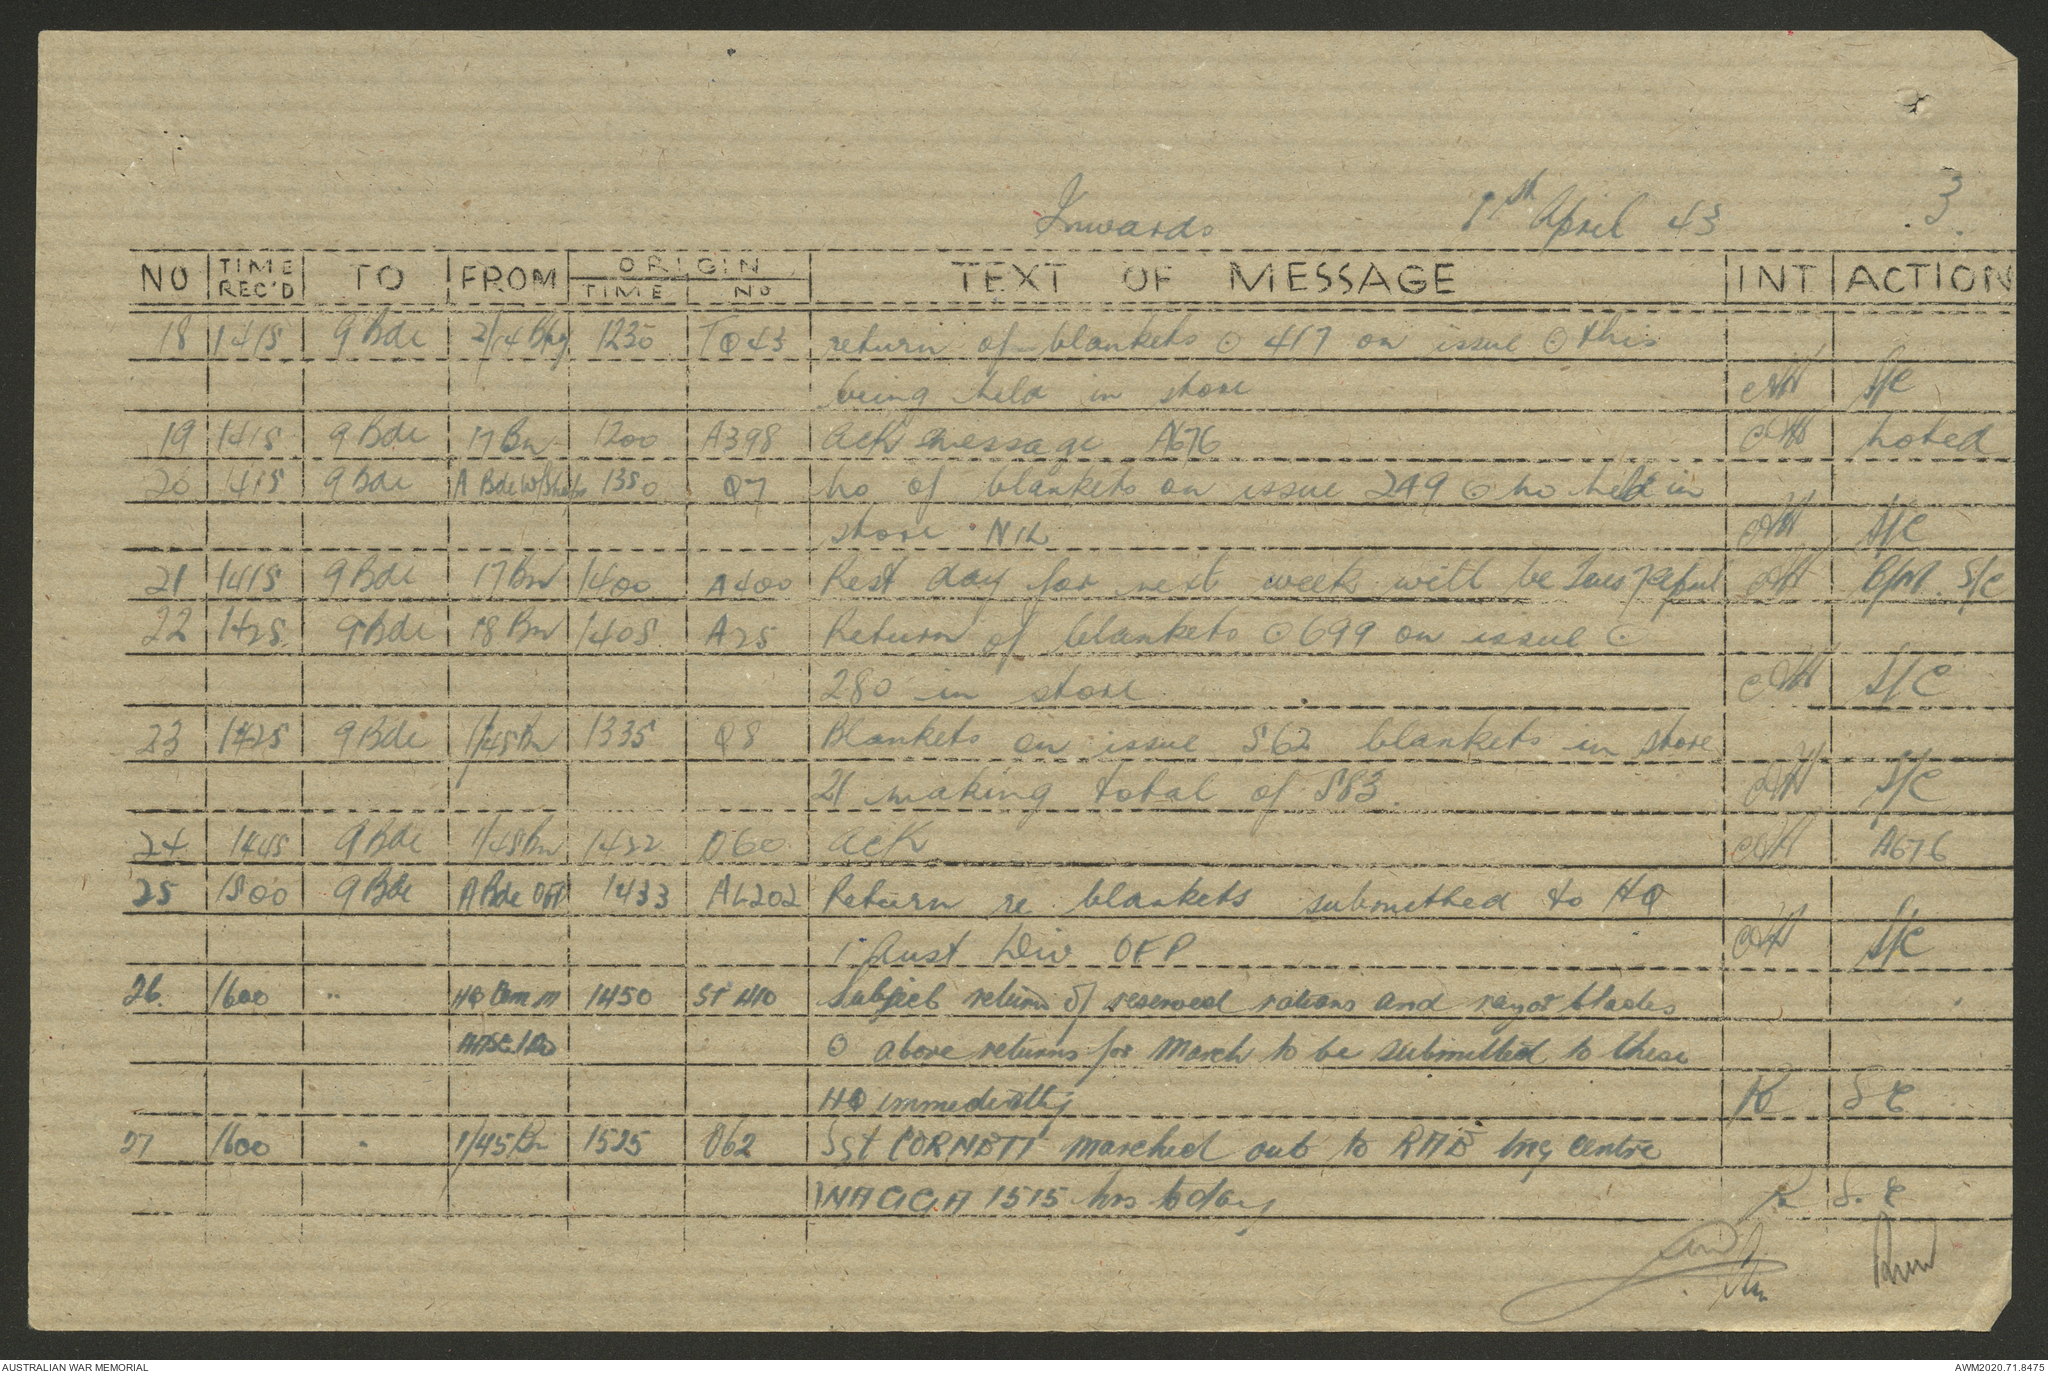 Inwards 1st April 43 .3.
NO TIME REC'D TO FROM ORIGIN TIME NO TEXT OF MESSAGE INT ACTION
18 1415 9 Bde 1230 TQ43 return of blankets ⊙ 417 on issue ⊙ this
being held in store S/C
19 1415 9 Bde 17 Bn 1200 A398 ack message A676 noted
20 1415 9 Bde A Bde W/Shops 1350 Q7 no of blankets on issue 249 ⊙ no held in
store NIL S/C
21 1415 9 Bde 17 Bn 1400 A400 Rest day for next week will be Tues 7 April B/M. S/C
22 1425 9 Bde 18 Bn 1405 A25 Return of blankets ⊙ 699 on issue ⊙
280 in store S/C
23 1425 9 Bde 1/45 Bn 1335 Q8 Blankets on issue 562 blankets in store
21 making total of 583. S/C
24 1445 9 Bde 1/45 Bn 1422 O60 ack A676
25 1500 9 Bde A Bde OFP 1433 AL202 Return re blankets submitted to HQ
1 Aust Div OFP S/C
26. 1600 " HQ Comm 1450 ST 410 Subject return of reserved rations and razor blades
AASC 1 Div ⊙ above returns for March to be submitted to these
HQ immediately R S C
27 1600 " 1/45 Bn 1525 O62 Sgt CORNETT marched out to RAE tng centre
WAGGA 1515 hrs today R S. C
AUSTRALIAN WAR MEMORIAL AWM2020.71.8475